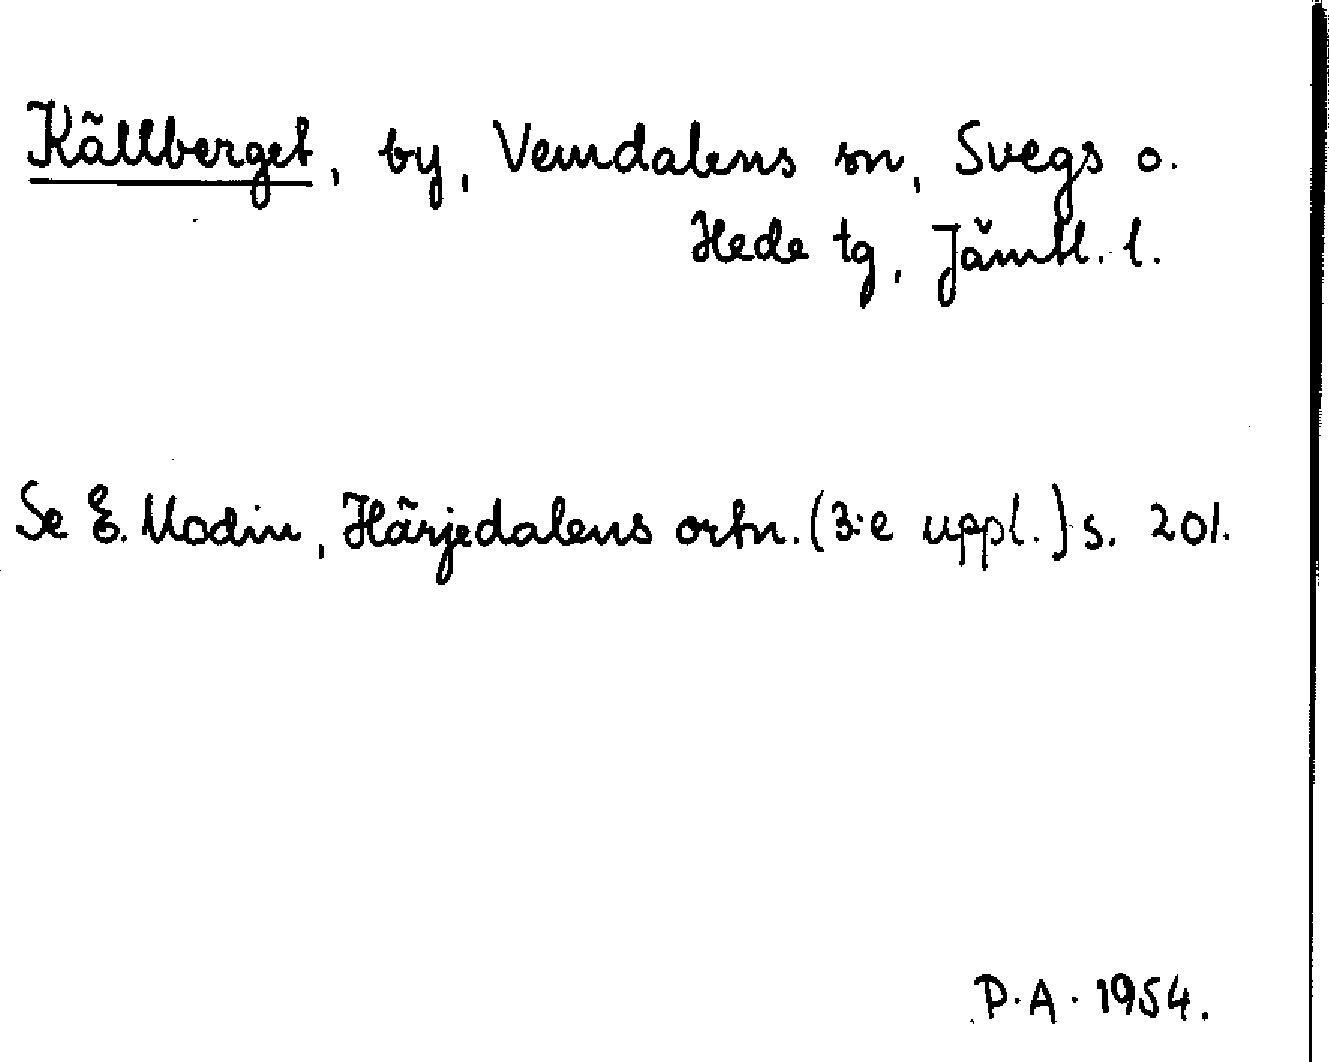 Källberget, by, Vemdalens sn, Svegs o.
Hede tg, Jämtl. l.
Se E. Modin, Härjedalens ortn. (3:e uppl.) s. 201.
P.A. 1954.